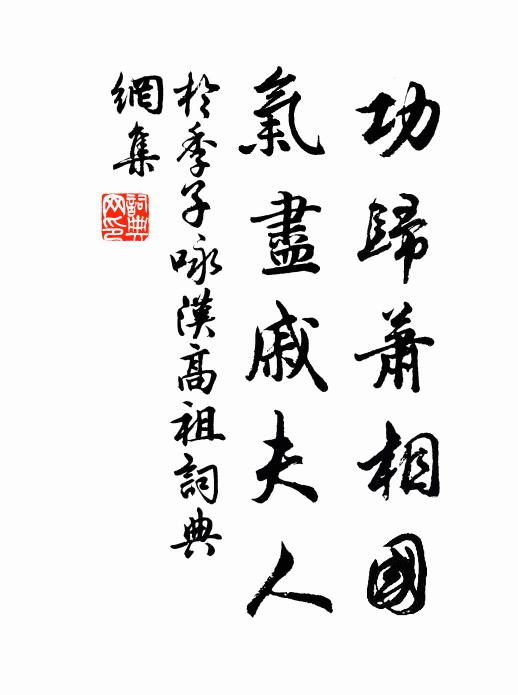 功歸蕭相國
氣盡戚夫人
於季子咏漢高祖詞典
網集
詞典網印